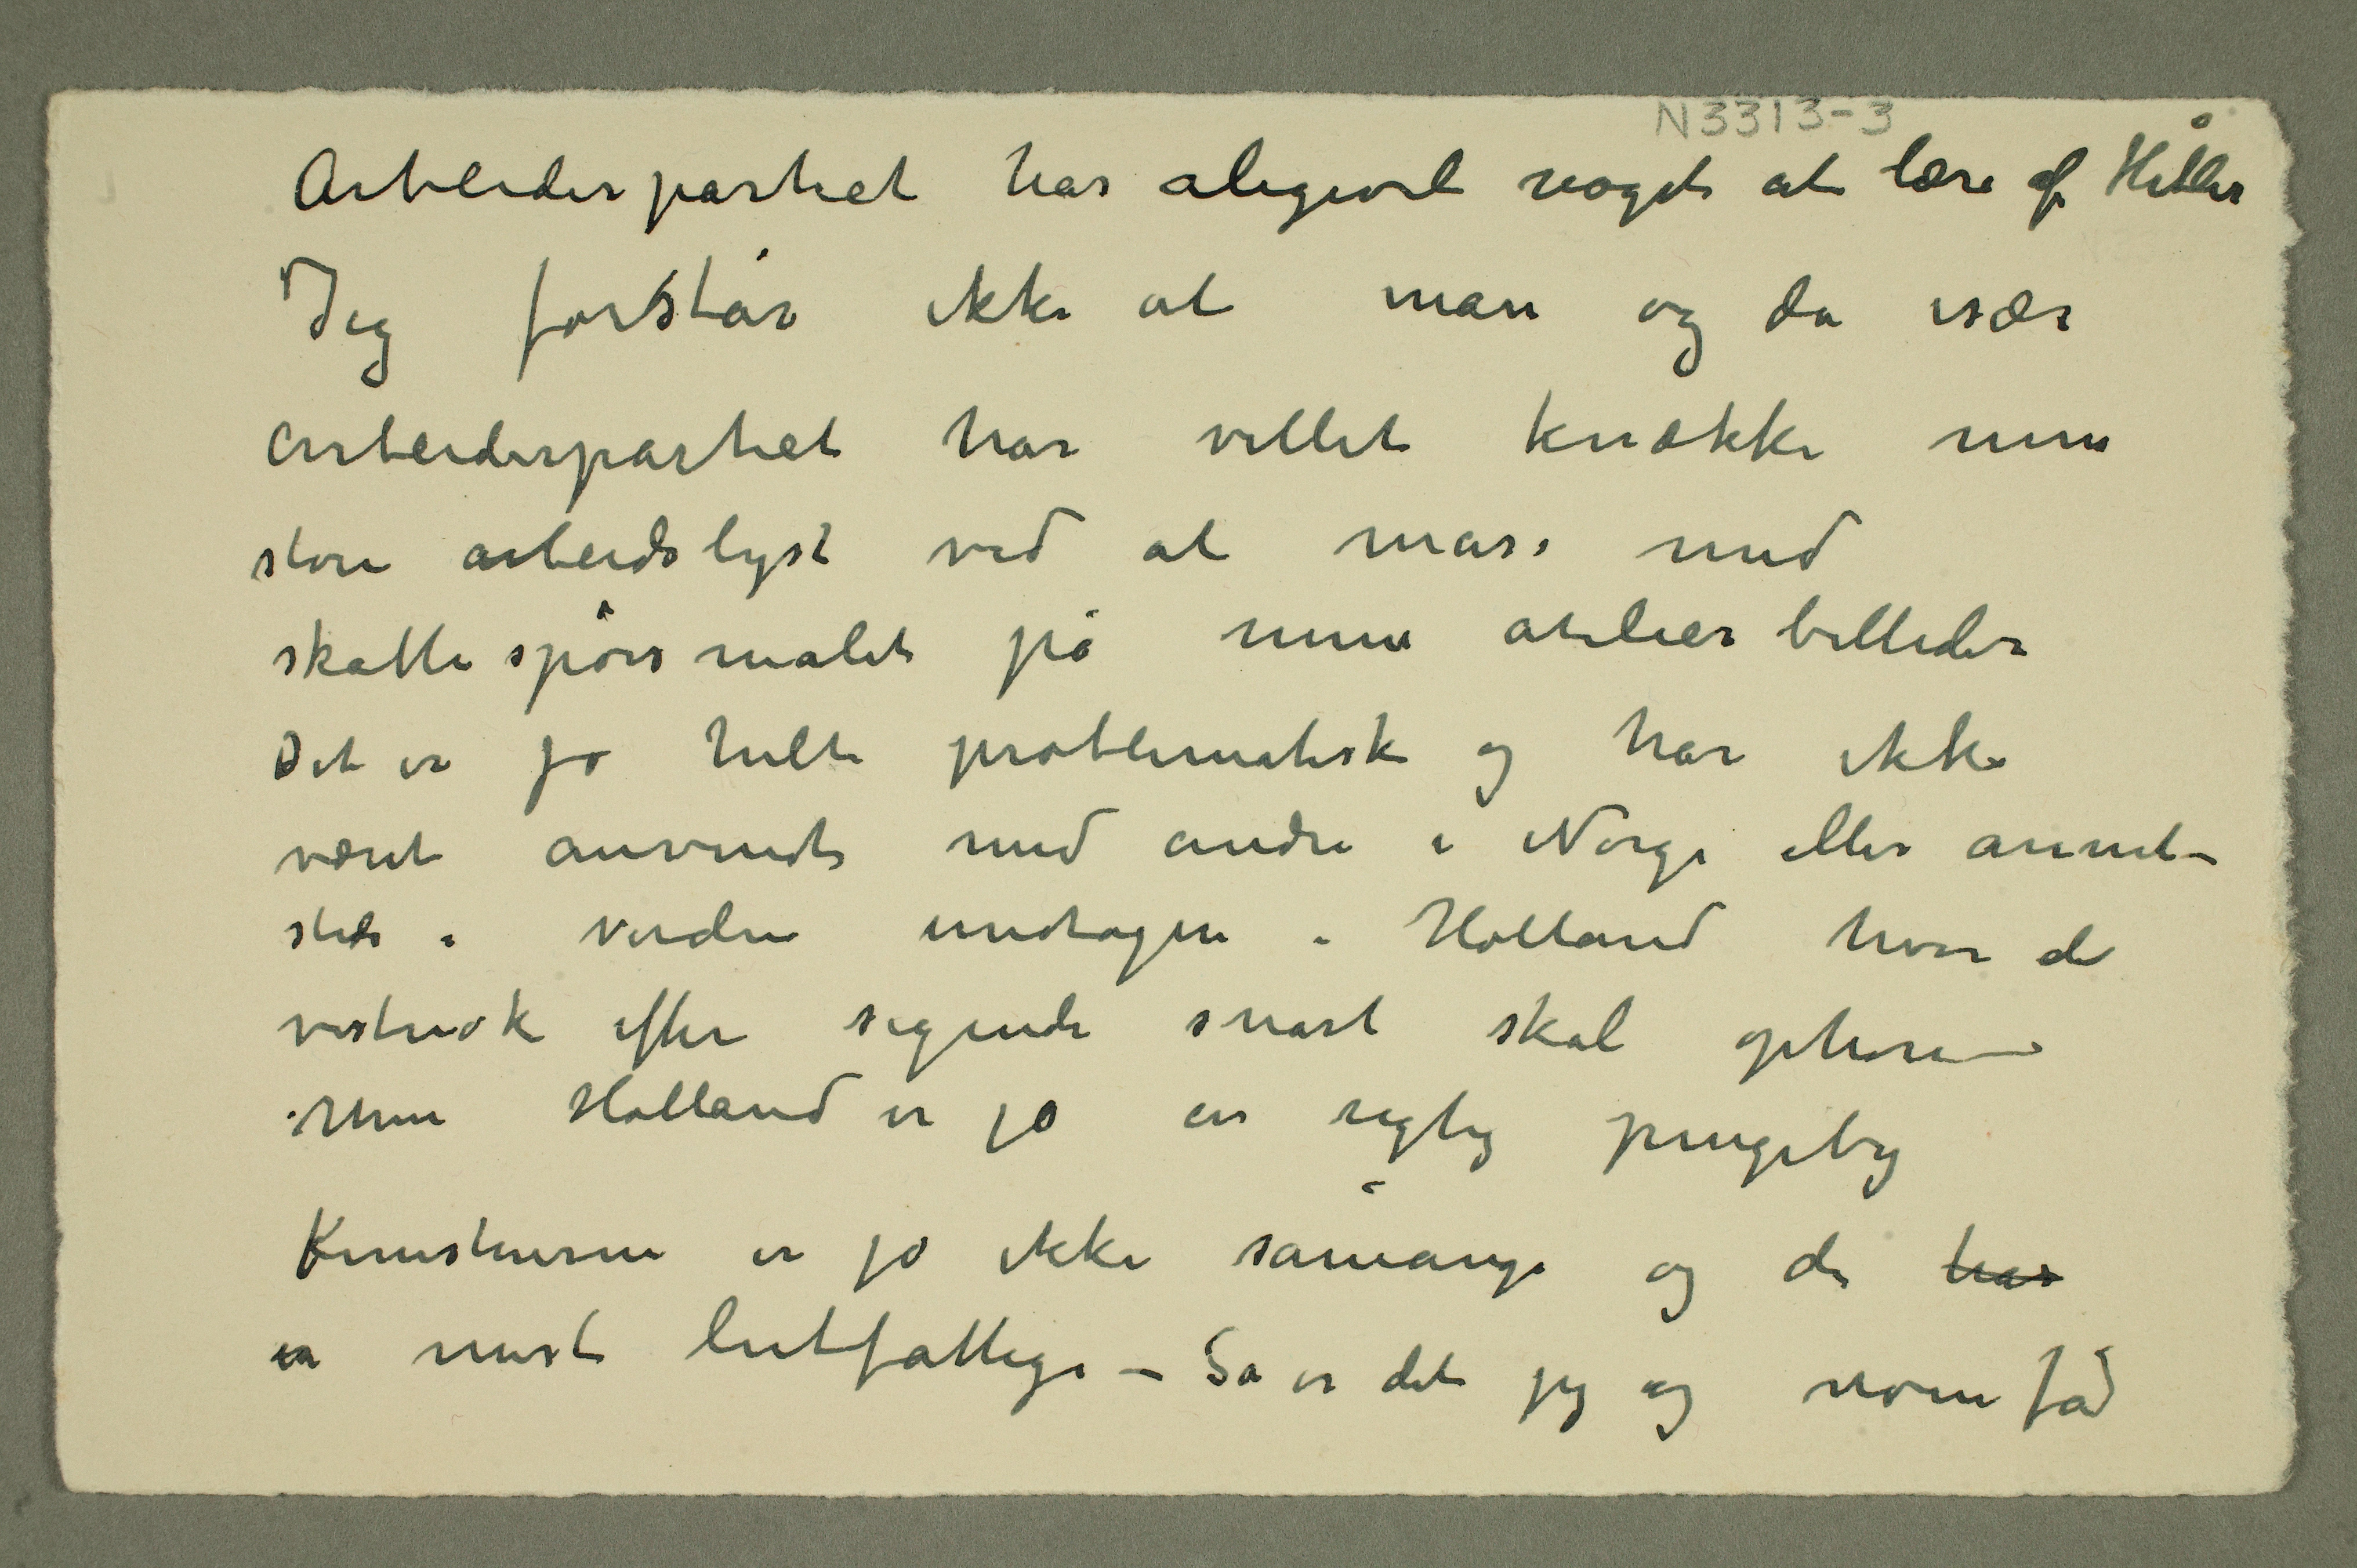 N3313-3
Arbeiderpartiet har aligevel noget at lære af Hitler
Jeg forstår ikke at man og da især
arbeiderpartiet har villet knække min
store arbeidslyst ved at mase med
skattespørsmålet på mine atelierbilleder
Det er jo helt problematisk og har ikke
været anvendt med andre i Norge eller annet-
steds i verden undtagen i Holland hvor de
vistnok efter sigende snart skal ophøre –
Men Holland er jo en rigtig pengeby
Kunstnerne er jo ikke såmange og de har
er mest lutfattige – Så er det jeg og noen få